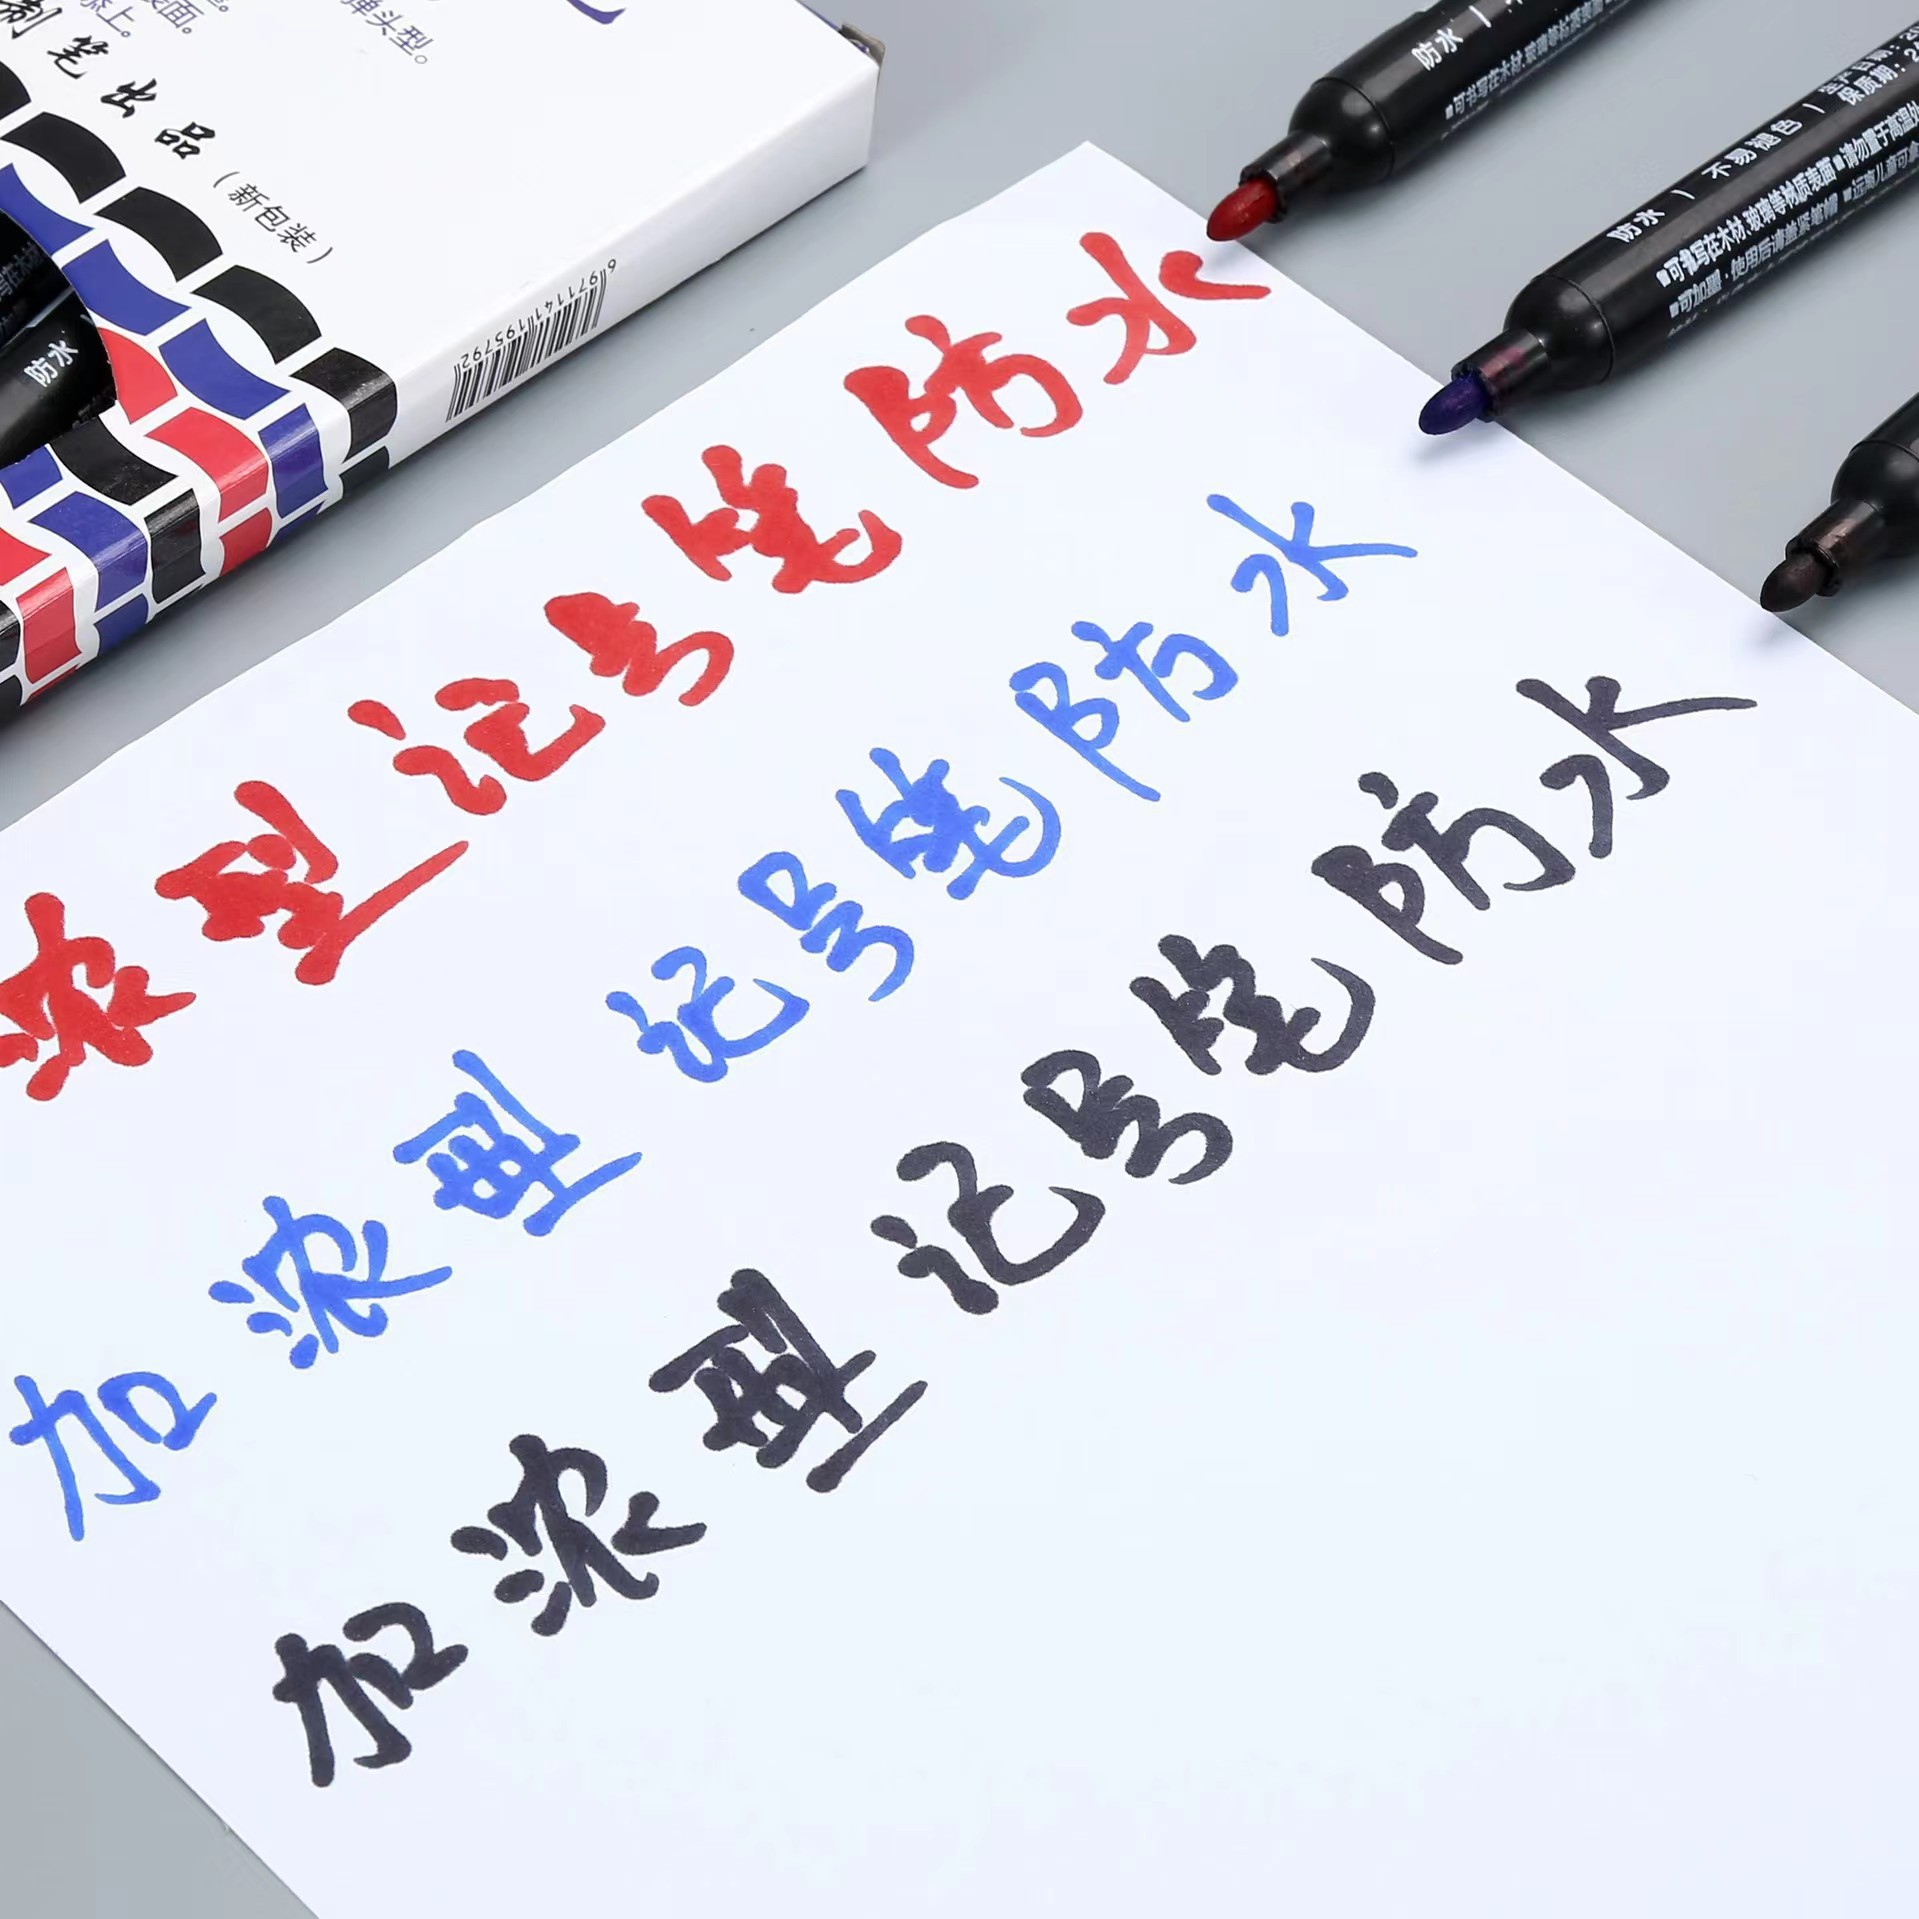 弹头型。
表面。
添上。
制笔出品
(新包装)
6971141195792
防水
浓型记号笔防水
加浓型记号笔防水
加浓型记号笔防水
防水 |
■可书写在木材、玻璃等材质表面
防水 | 不易褪色 |
■可书写在木材、玻璃等材质表面■请勿置于高温处
■可加墨·使用后请盖紧笔帽■远离儿童可拿
生产日期:
保质期: